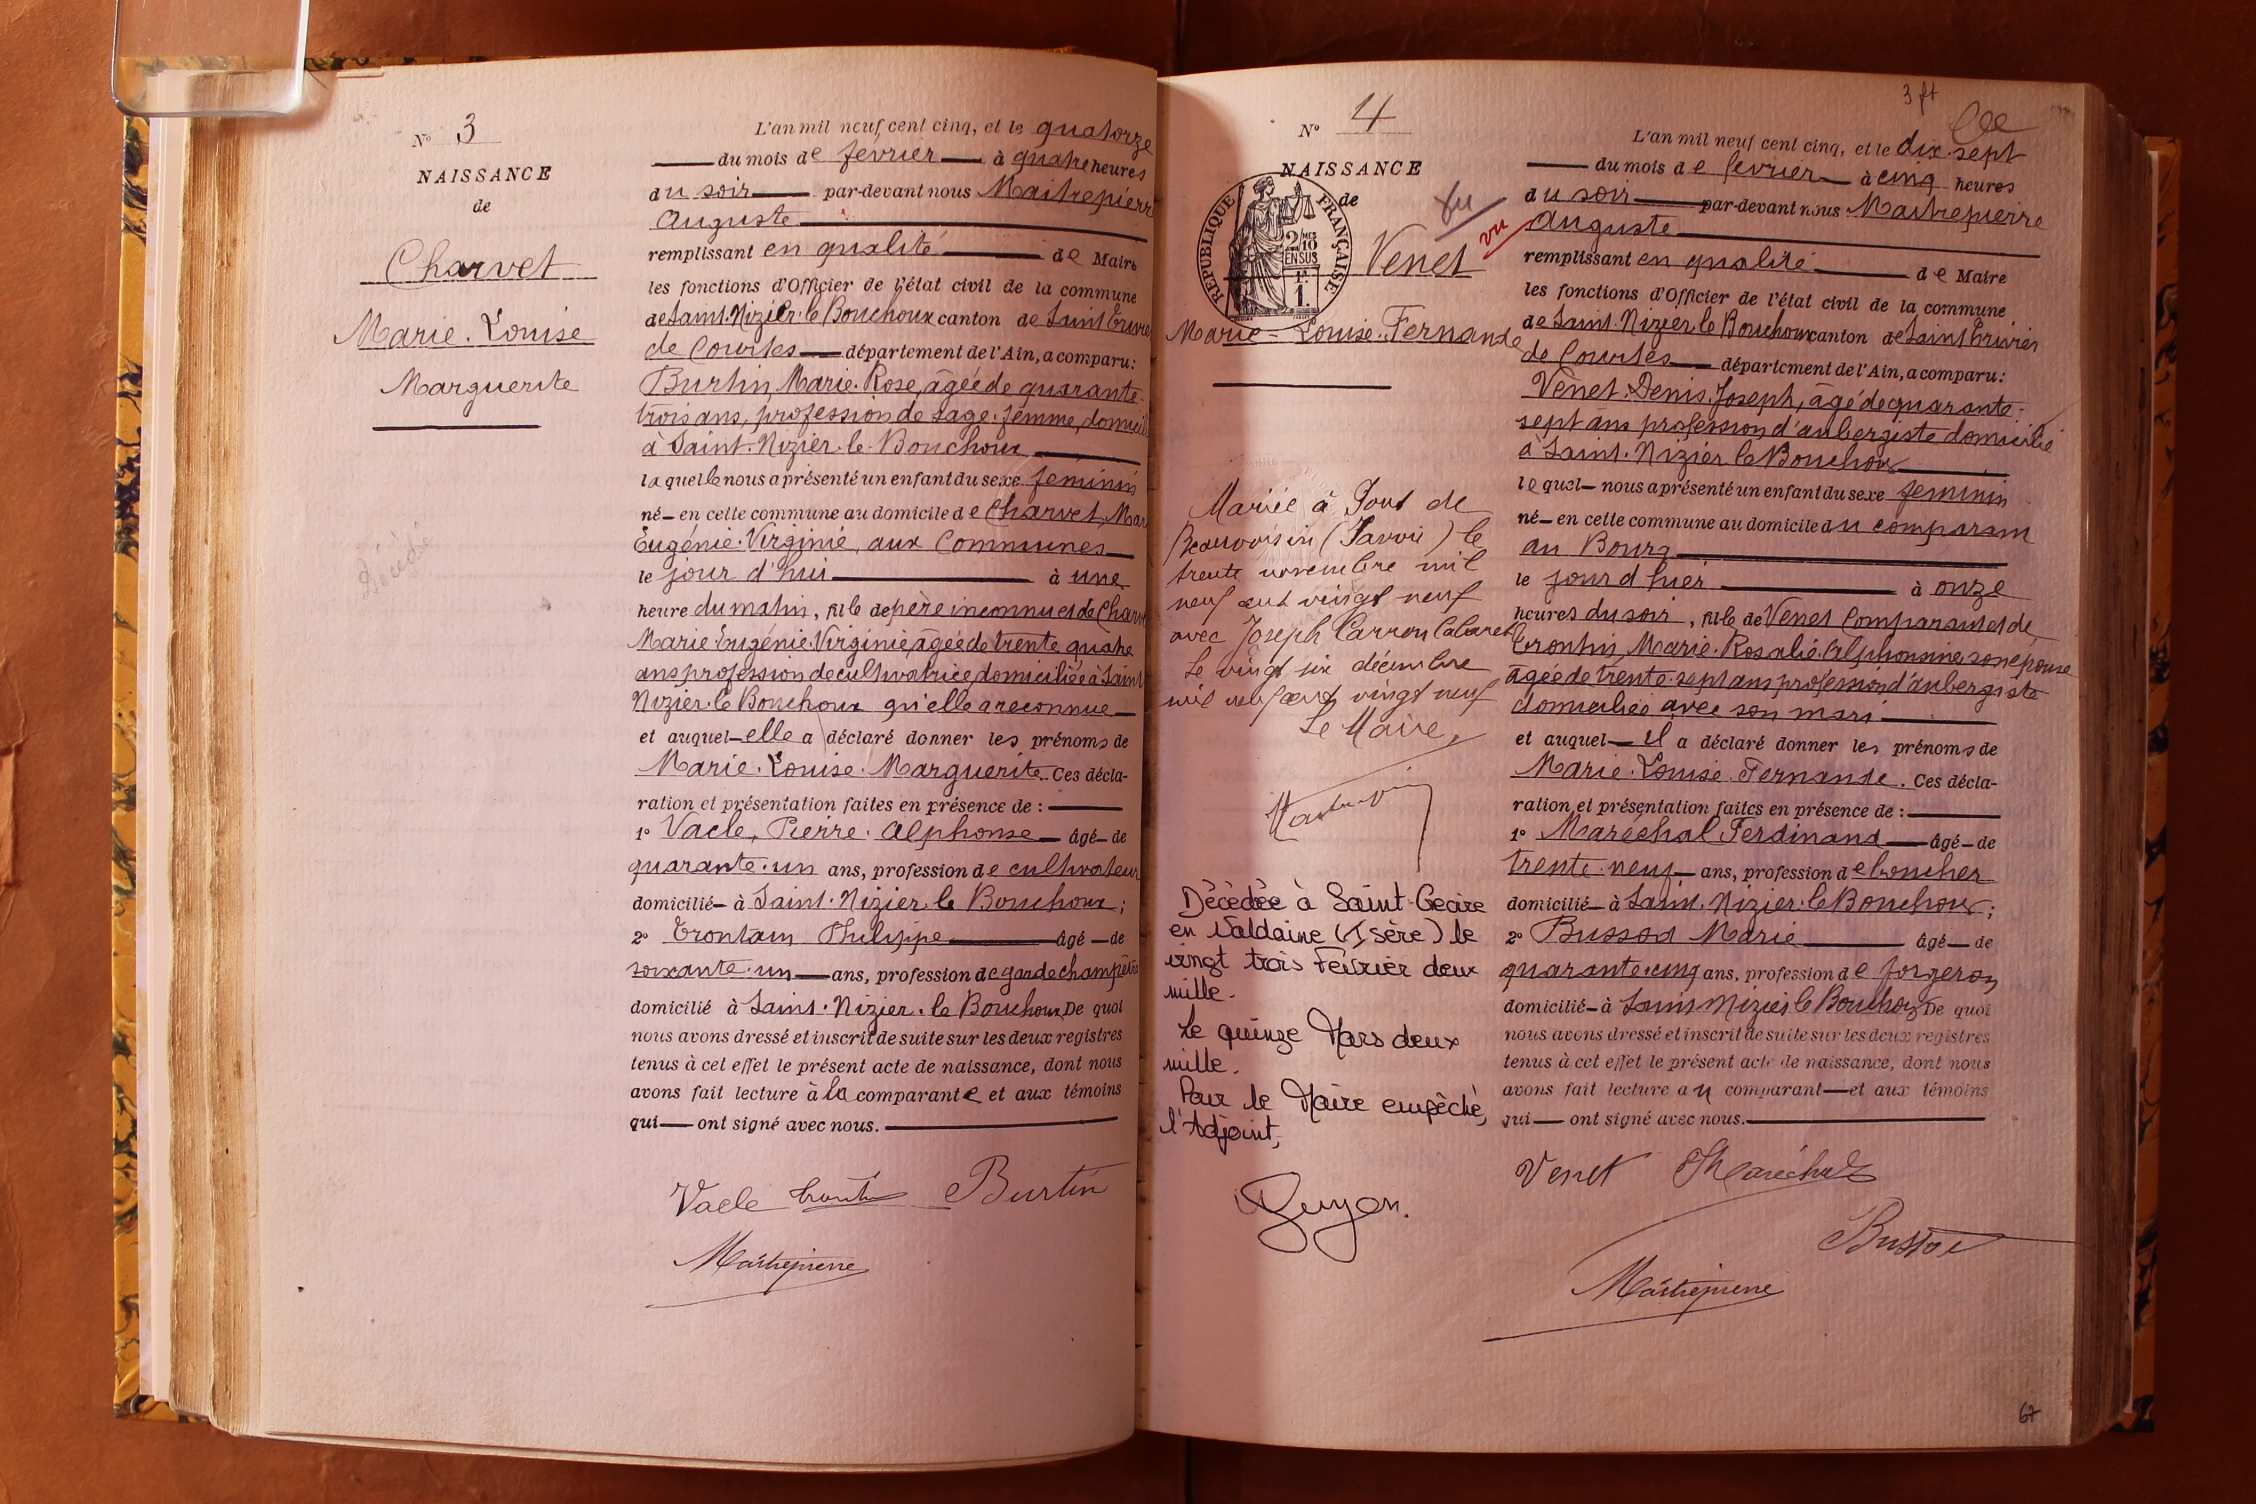 N° 3
NAISSANCE
de
Charvet
Marie. Louise
Marguerite
Décédée
L'an mil neuf cent cinq, et le quatorze
du mois de février à quatre heures
du soir par-devant nous Maitrepierre
Auguste
remplissant en qualité de Maire
les fonctions d'Officier de l'état civil de la commune
de Saint. Nizier. le Bouchoux canton de Saint Trivier
de Courtes département de l'Ain, a comparu:
Burtin, Marie. Rose, âgée de quarante-
trois ans, profession de sage. femme, domicili
à Saint. Nizier. le. Bouchoux
laquelle nous a présenté un enfant du sexe féminin
né en cette commune au domicile de Charvet, Mar
Eugénie. Virginie, aux Communes
le jour d'hui à une
heure du matin, fille de père inconnu et de Charv
Marie Eugénie. Virginie, âgée de trente quatre
ans profession de cultivatrice domiciliée à Saint
Nizier. le Bouchoux qu'elle a reconnue
et auquel elle a déclaré donner les prénoms de
Marie. Louise. Marguerite. Ces décla-
ration et présentation faites en présence de :
1° Vacle, Pierre. Alphonse âgé de
quarante. un ans, profession de cultivateur
domicilié à Saint. Nizier. le Bouchoux ;
2° Trontain Philippe âgé de
soixante. un ans, profession de garde champêtre
domicilié à Saint. Nizier. le Bouchoux De quoi
nous avons dressé et inscrit de suite sur les deux registres
tenus à cet effet le présent acte de naissance, dont nous
avons fait lecture à la comparante et aux témoins
qui ont signé avec nous.
Vacle Burtin
Maitrepierre
3 ft
N° 4
NAISSANCE
de
RÉPUBLIQUE FRANÇAISE
2/10 MES
EN SUS
1.
vu
vu
Venet
Marie - Louise. Fernande
Mariée à Pont de
Beauvoisin (Savoie) le
trente novembre mil
neuf cent vingt neuf
avec Joseph Carron Cabaret
Le vingt six décembre
mil neuf cent vingt neuf
Le Maire,
Décédée à Saint Geoire
en Valdaine (Isère) le
vingt trois Février deux
mille.
Le quinze Mars deux
mille.
Pour le Maire empêché,
l'Adjoint,
Guyon.
L'an mil neuf cent cinq, et le dix. sept
du mois de février à cinq heures
du soir par-devant nous Maitrepierre
Auguste
remplissant en qualité de Maire
les fonctions d'Officier de l'état civil de la commune
de Saint. Nizier. le Bouchoux canton de Saint Trivier
de Courtes département de l'Ain, a comparu:
Venet. Denis. Joseph, âgé de quarante-
sept ans profession d'aubergiste domicilié
à Saint. Nizier le Bouchoux
lequel nous a présenté un enfant du sexe féminin
né en cette commune au domicile du comparant
au Bourg
le jour d'hier à onze
heures du soir, fille de Venet Comparant et de
Trontin, Marie. Rosalie. Alphonsine son épouse
âgée de trente. sept ans profession d'aubergiste
domiciliée avec son mari
et auquel il a déclaré donner les prénoms de
Marie. Louise. Fernande. Ces décla-
ration et présentation faites en présence de :
1° Maréchal Ferdinand âgé de
trente. neuf ans, profession de boucher
domicilié à Saint. Nizier. le Bouchoux ;
2° Bussod Marie âgé de
quarante. cinq ans, profession de forgeron
domicilié à Saint Nizier le Bouchoux De quoi
nous avons dressé et inscrit de suite sur les deux registres
tenus à cet effet le présent acte de naissance, dont nous
avons fait lecture au comparant et aux témoins
qui ont signé avec nous.
Venet Maréchal
Bussod
Maitrepierre
67